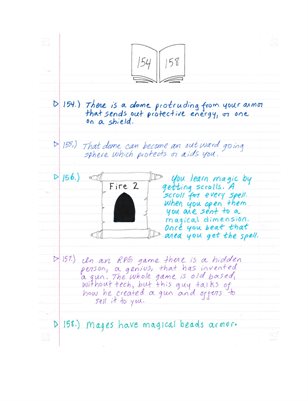 154 158
154.) There is a dome protruding from your armor
that sends out protective energy, or one
on a shield.
155.) That dome can become an outward going
sphere which protects or aids you.
156.)
Fire 2
You learn magic by
getting scrolls. A
scroll for every spell
When you open them
you are sent to a
magical dimension.
Once you beat that
area you get the spell.
157.) In an RPG game there is a hidden
person, a genius, that has invented
a gun. The whole game is old based,
without tech, but this guy talks of
how he created a gun and offers to
sell it to you.
158.) Mages have magical beads armor.